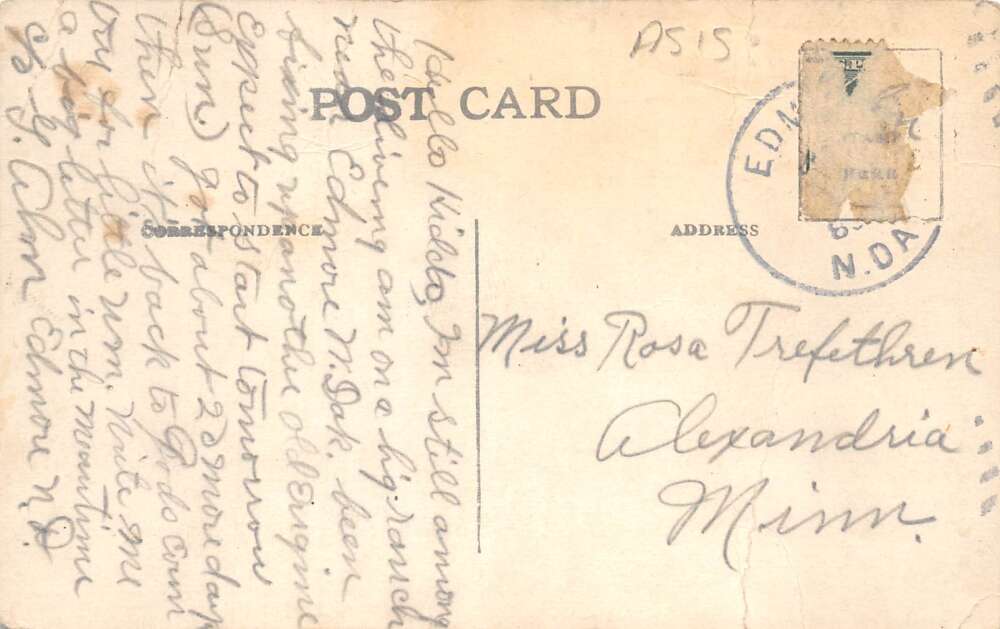 A515
POST CARD
CORRESPONDENCE
ADDRESS
EDM
N. DA
Hello Kiddo, I'm still among
the living am on a big ranch
near Edmore N. Dak. been
fixing up another old Engine
Expect to start tomorrow
(Sun.) got about 20 more days
then it back to Gods coun
try for little Wm. Write me
a big letter in the meantime
% G. Alm Edmore N.D.
Miss Rosa Trefethren
Alexandria
Minn.